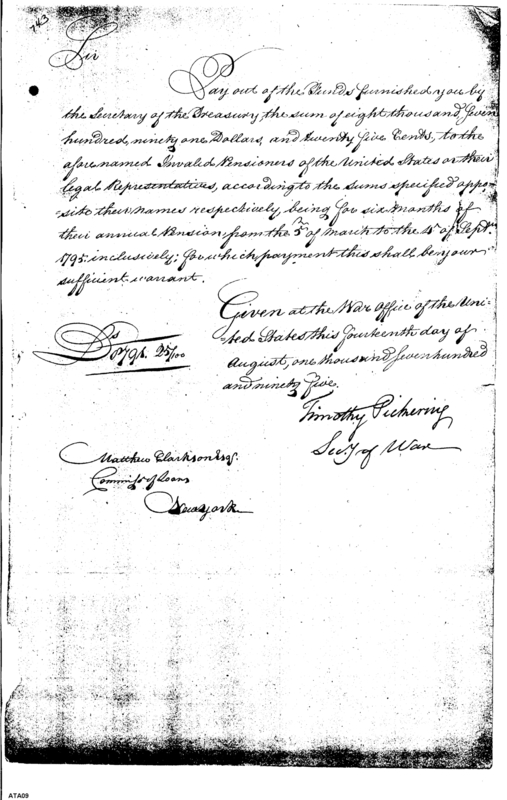 743
Sir
Pay out of the Funds furnished you by
the Secretary of the Treasury, the sum of eight thousand, seven
hundred, ninety one Dollars, and twenty five Cents, to the
afore named Invalid Pensioners of the United States or their
legal Representatives, according to the sums specified oppo-
-site their names respectively being for six Months of
their annual Pension from the 5th of March to the 4th of Septr
1795 inclusively; for which payment this shall be your
sufficient warrant.
Given at the War Office of the Uni-
-ted States this fourteenth day of
August, one thousand seven hundred
and ninety five.
Ds 8791. 25/100
Timothy Pickering
Secy of War
Matthew Clarkson Esqr.
Commissr of Loans
New York
ATA09